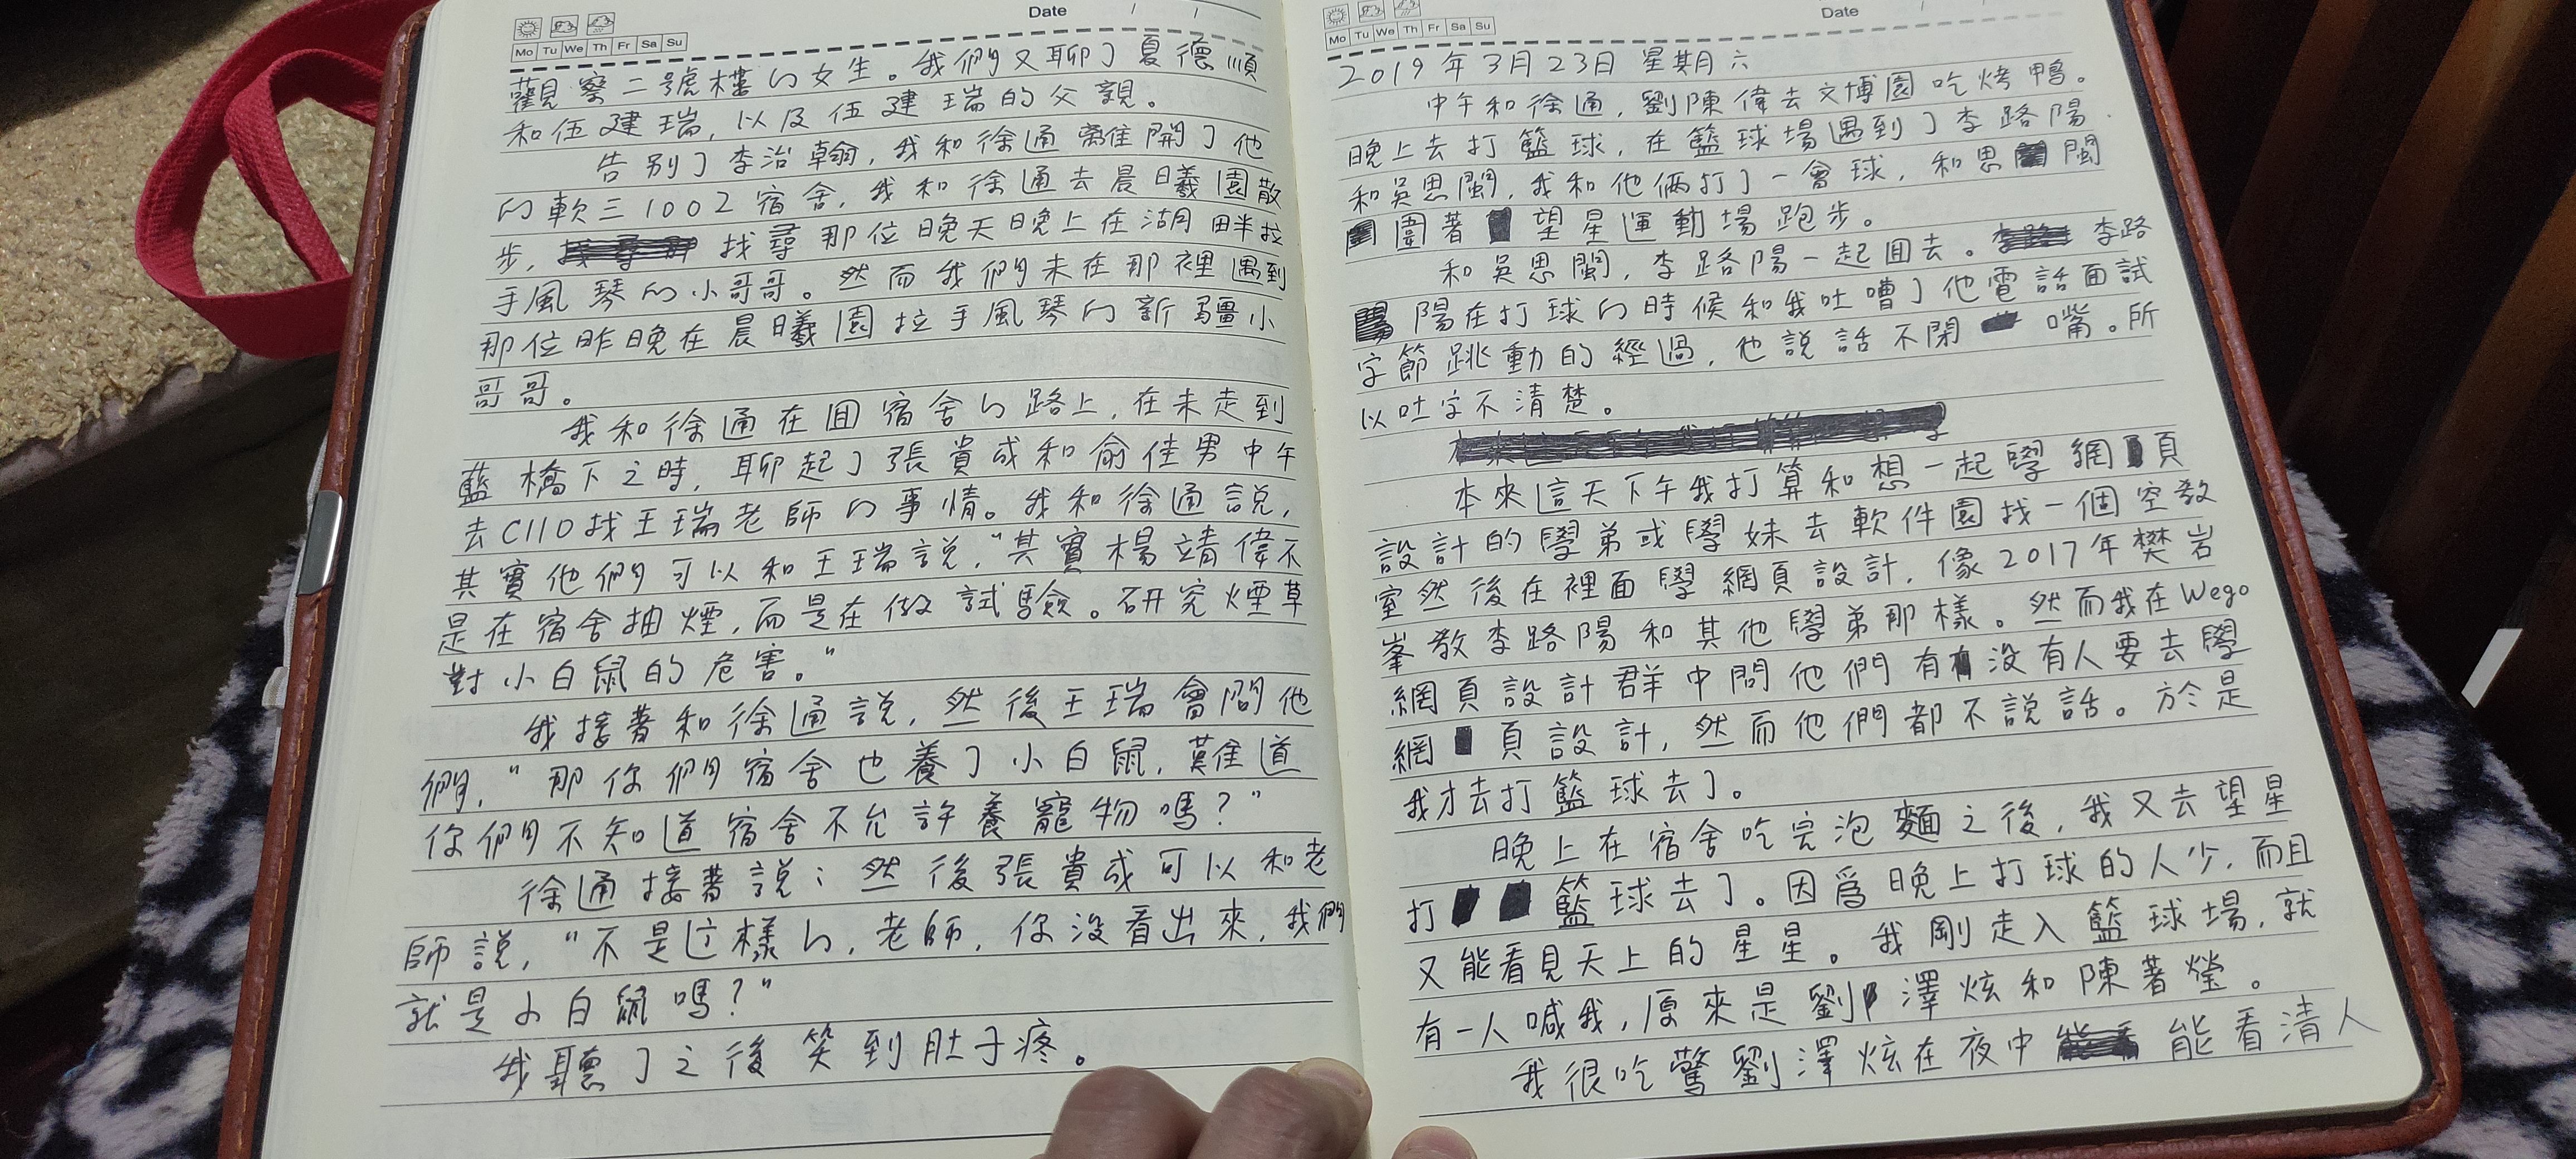 Date / /
Mo Tu We Th Fr Sa Su
觀察二號樓的女生。我們又聊了夏德順
和伍建瑞,以及伍建瑞的父親。
告別了李治翰,我和徐通離開了他
的軟三1002宿舍,我和徐通去晨曦園散
步, 找尋那位晚天晚上在湖畔拉
手風琴的小哥哥。然而我們未在那裡遇到
那位昨晚在晨曦園拉手風琴的新疆小
哥哥。
我和徐通在回宿舍的路上,在未走到
藍橋下之時,聊起了張貴成和俞佳男中午
去C110找王瑞老師的事情。我和徐通說,
其實他們可以和王瑞說,“其實楊靖偉不
是在宿舍抽煙,而是在做試驗。研究煙草
對小白鼠的危害。”
我接著和徐通說,然後王瑞會問他
們,“那你們宿舍也養了小白鼠,難道
你們不知道宿舍不允許養寵物嗎?”
徐通接著說:然後張貴成可以和老
師說,“不是這樣的,老師,你沒看出來,我們
就是小白鼠嗎?”
我聽了之後笑到肚子疼。
Date / /
Mo Tu We Th Fr Sa Su
2019年3月23日 星期六
中午和徐通,劉陳偉去文博園吃烤鴨。
晚上去打籃球,在籃球場遇到了李路陽
和吳思閩,我和他倆打了一會球,和思閩
圍著望星運動場跑步。
和吳思閩,李路陽一起回去。李路
陽在打球的時候和我吐嘈了他電話面試
字節跳動的經過,他說話不閉嘴。所
以吐字不清楚。
本來這天下午我打算和想一起學網頁
設計的學弟或學妹去軟件園找一個空教
室然後在裡面學網頁設計,像2017年樊岩
峯教李路陽和其他學弟那樣。然而我在Wego
網頁設計群中問他們有沒有人要去學
網頁設計,然而他們都不說話。於是
我才去打籃球去了。
晚上在宿舍吃完泡麵之後,我又去望星
打籃球去了。因為晚上打球的人少,而且
又能看見天上的星星。我剛走入籃球場,就
有一人喊我,原來是劉澤炫和陳著瑩。
我很吃驚劉澤炫在夜中能看清人